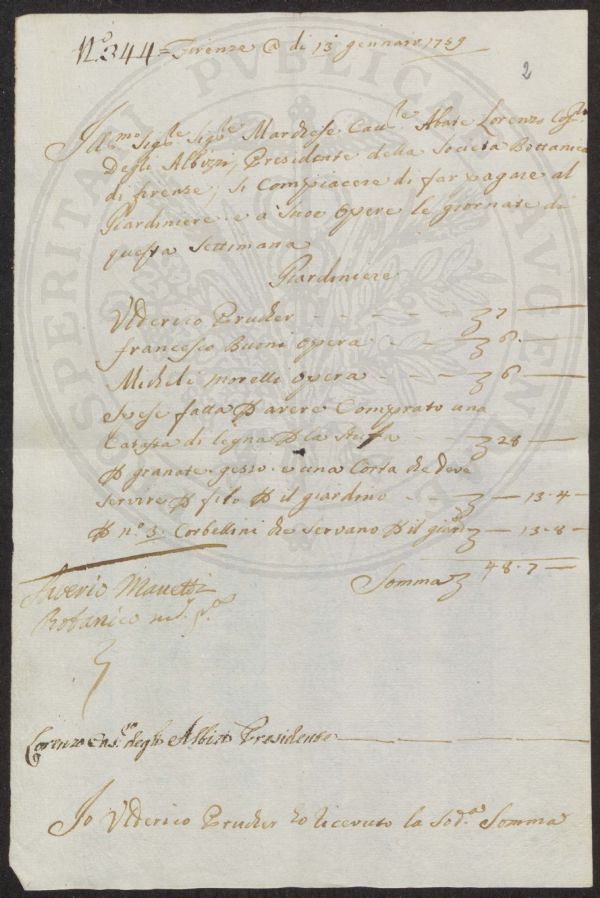 N.º 344 = Firenze @ di 13 gennaio 1749
2
Ill.mo Sig.re Sig.re Marchese Cav.re Abate Lorenzo
Degli Albizzi, Presidente della Società Bottanica
di firenze; si Compiacere di far pagare al
Giardiniere e a Suoe Opere le giornate di
questa Settimana
Giardiniere
Ulderico Prucker - - - - - 7 —
francesco Buoni opera - - 6 —
Micheli Morelli opera - - - 6 —
Spese fatta p avere Comprato una
Catasta di legna p la stufa - - 28 —
p granate gesso e una Corta che deve
servire p filo p il giardino - - — 13.4
p n.º 3 Corbellini che servano p il giard — 13.8
Somma 48.7 —
Saverio Manetti
Botanico
Lorenzo degli Albizi Presidente
Io Ulderico Prucker ho ricevuto la Sod.a Somma
SPERITATI PVBLICAE AVGENDAE